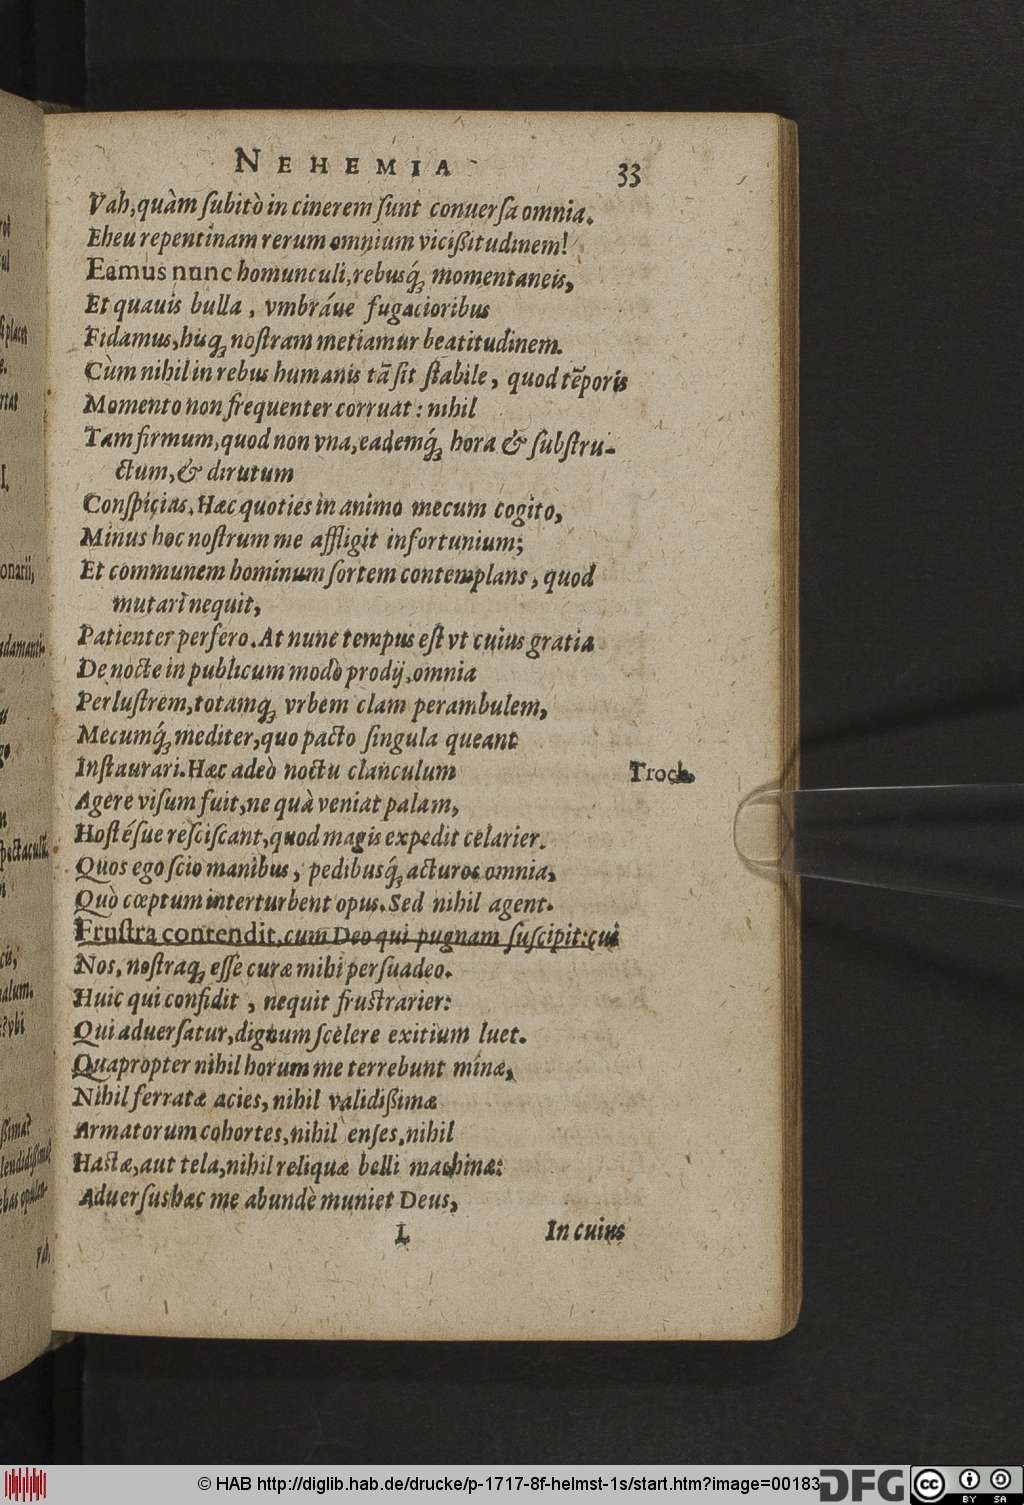 NEHEMIA 33
Vah, quàm ſubitò in cinerem ſunt conuerſa omnia.
Eheu repentinam rerum omnium vicißitudinem!
Eamus nunc homunculi, rebusq́ꝫ momentaneis,
Et quauis bulla, vmbráue fugacioribus
Fidamus, hisqꝫ noſtram metiamur beatitudinem.
Cùm nihil in rebus humanis tā ſit ſtabile, quod tēporis
Momento non frequenter corruat: nihil
Tam firmum, quod non vna, eademq́ꝫ hora & ſubſtru-
ctum, & dirutum
Conſpicias. Hæc quoties in animo mecum cogito,
Minus hoc noſtrum me affligit infortunium;
Et communem hominum ſortem contemplans, quod
mutari nequit,
Patienter perfero. At nunc tempus eſt vt cuius gratia
De nocte in publicum modò prodij, omnia
Perluſtrem, totamqꝫ vrbem clam perambulem,
Mecumq́ꝫ mediter, quo pacto ſingula queant
Inſtaurari. Hæc adeò noctu clanculum
Troch.
Agere viſum fuit, ne quà veniat palam,
Hoſtéſue reſciſcant, quod magis expedit celarier.
Quos ego ſcio manibus, pedibusq́ꝫ acturos omnia,
Quò cœptum interturbent opus. Sed nihil agent.
Fruſtra contendit, cum Deo qui pugnam ſuſcipit: cui
Nos, noſtraqꝫ eſſe curæ mihi perſuadeo.
Huic qui confidit, nequit fruſtrarier:
Qui aduerſatur, dignum ſcelere exitium luet.
Quapropter nihil horum me terrebunt minæ,
Nihil ferratæ acies, nihil validißimæ
Armatorum cohortes, nihil enſes, nihil
Haſtæ, aut tela, nihil reliquæ belli machinæ:
Aduerſus hæc me abundè muniet Deus,
L In cuius
© HAB http://diglib.hab.de/drucke/p-1717-8f-helmst-1s/start.htm?image=00183
DFG
cc BY SA